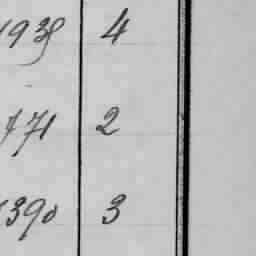 1938 4
771 2
1390 3